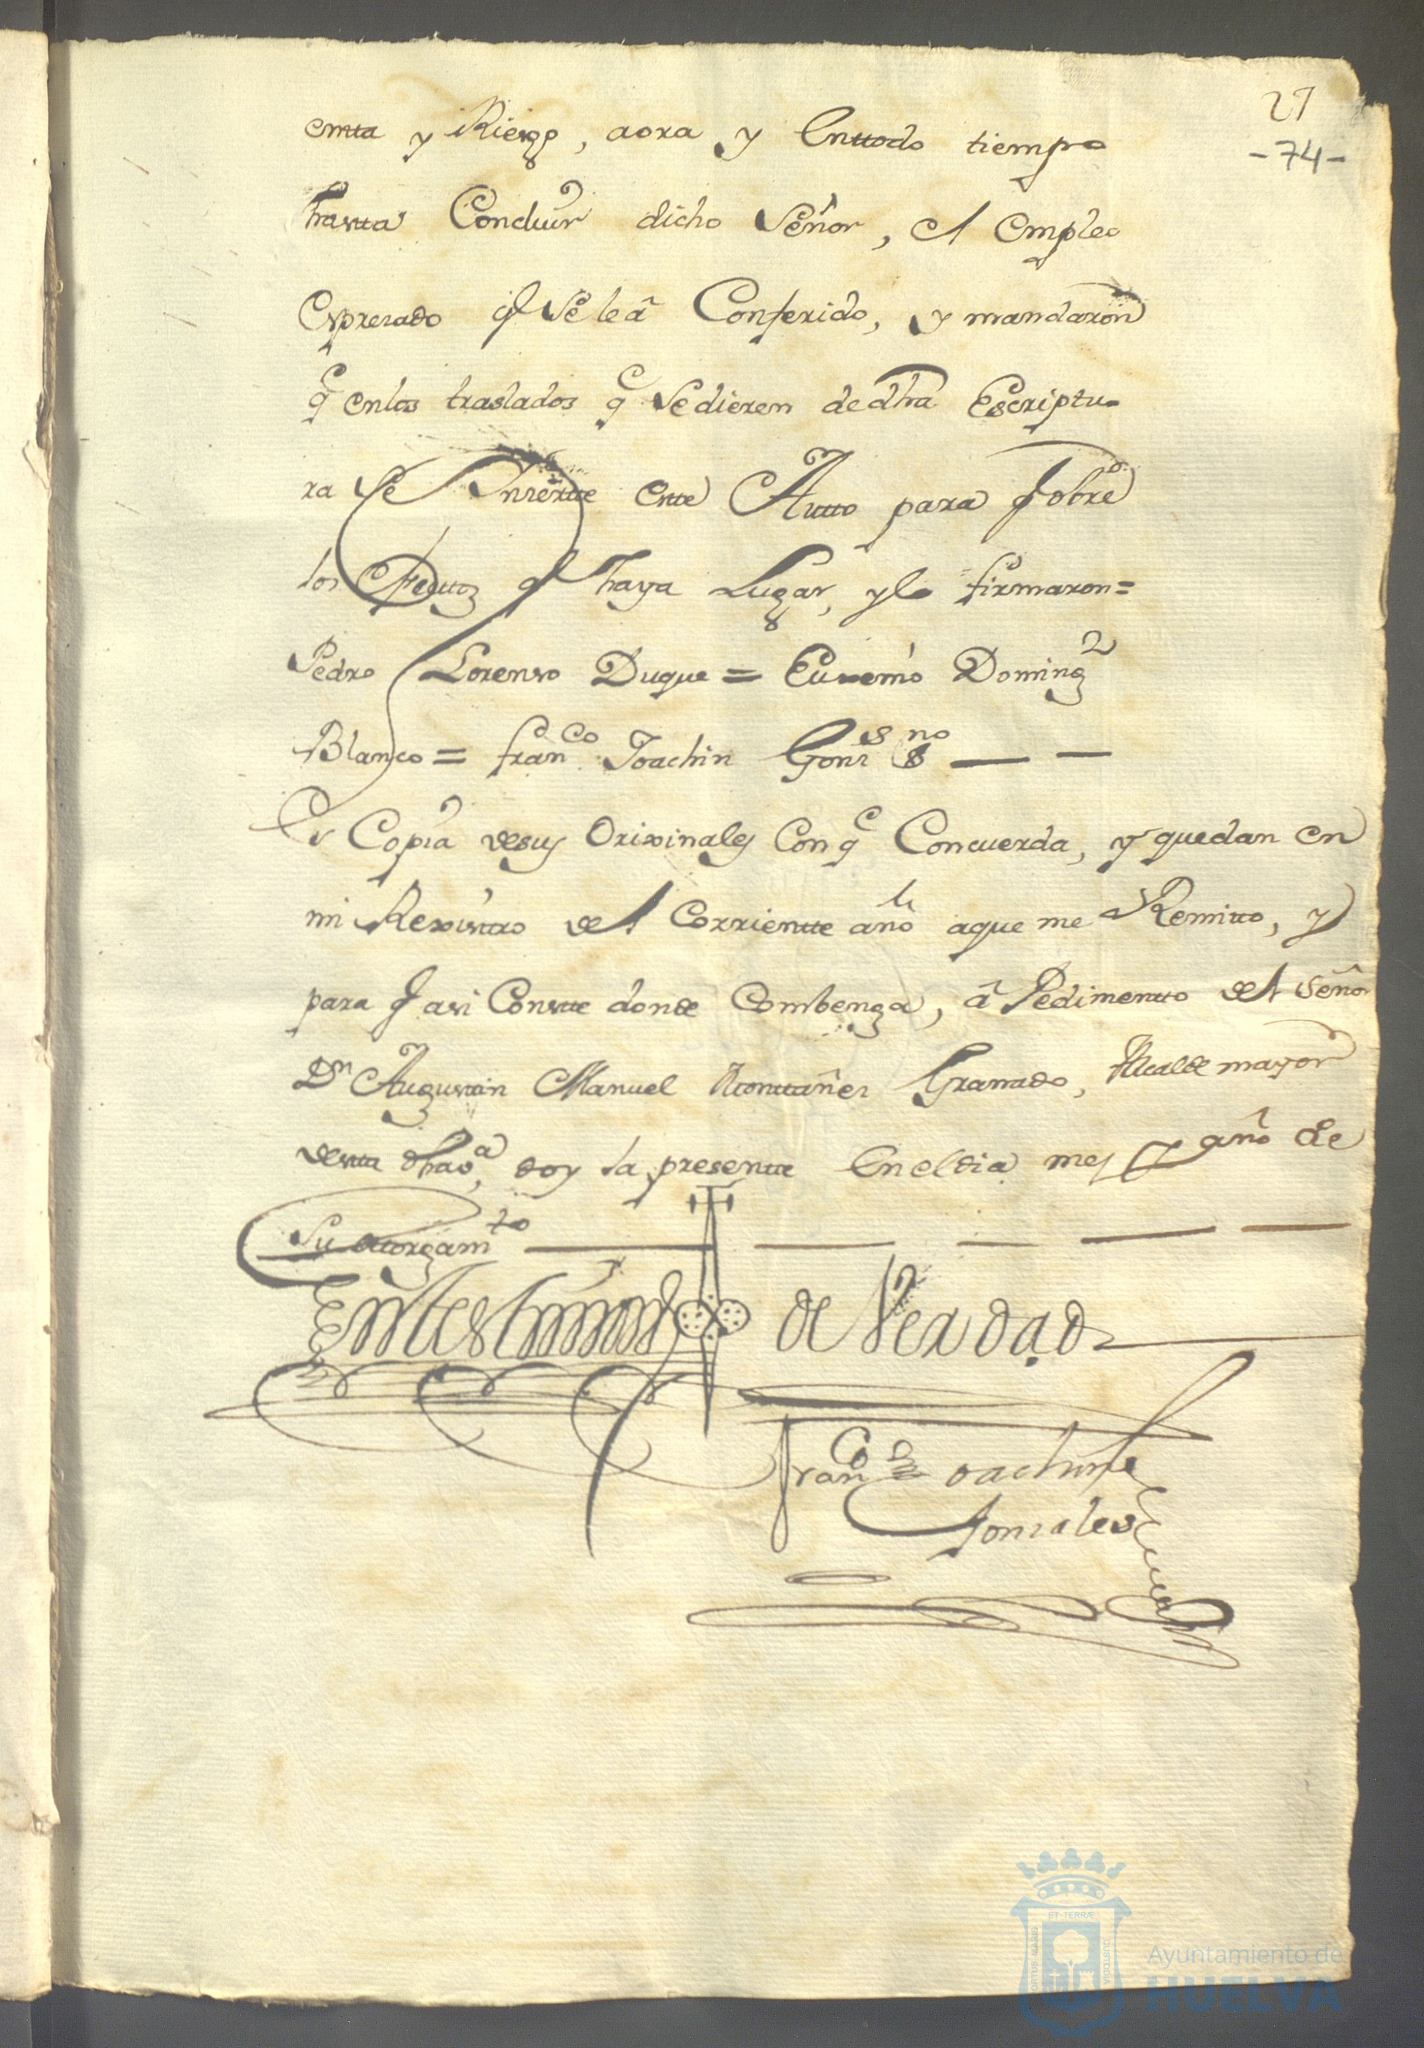 27
-74-
enta y Riesgo, aora y Enttodo tiempo
hastta Concluir dicho Señor, el empleo
Expresado q Se le â Conferido, y mandaron
q enlos traslados q Sedieren de dha Escriptu-
ra Se Inserte este Autto para q obre
los Efecttos q haya Lugar, y lo firmaron=
Pedro Lorenso Duque = Eusemio Doming.z
Blanco = fran.co Joachin Gons s.no
Es Copia desus Orixinales Con q Concuerda, y quedan en
mi Rexisttro del Corrientte año aque me Remitto, y
para q asi Constte donde Combenga, â Pedimentto del Señor
D.n Augusttin Manuel Monttañes Granado, Alcalde mayor
destta dha v.a, doy la presentte En el dia mes y año de
Su ottorgam.to
En testimonio de Verdad
Fran.co Joachin
Gonsales
ET TERRÆ
CUSTODIA
Ayuntamiento de
HUELVA